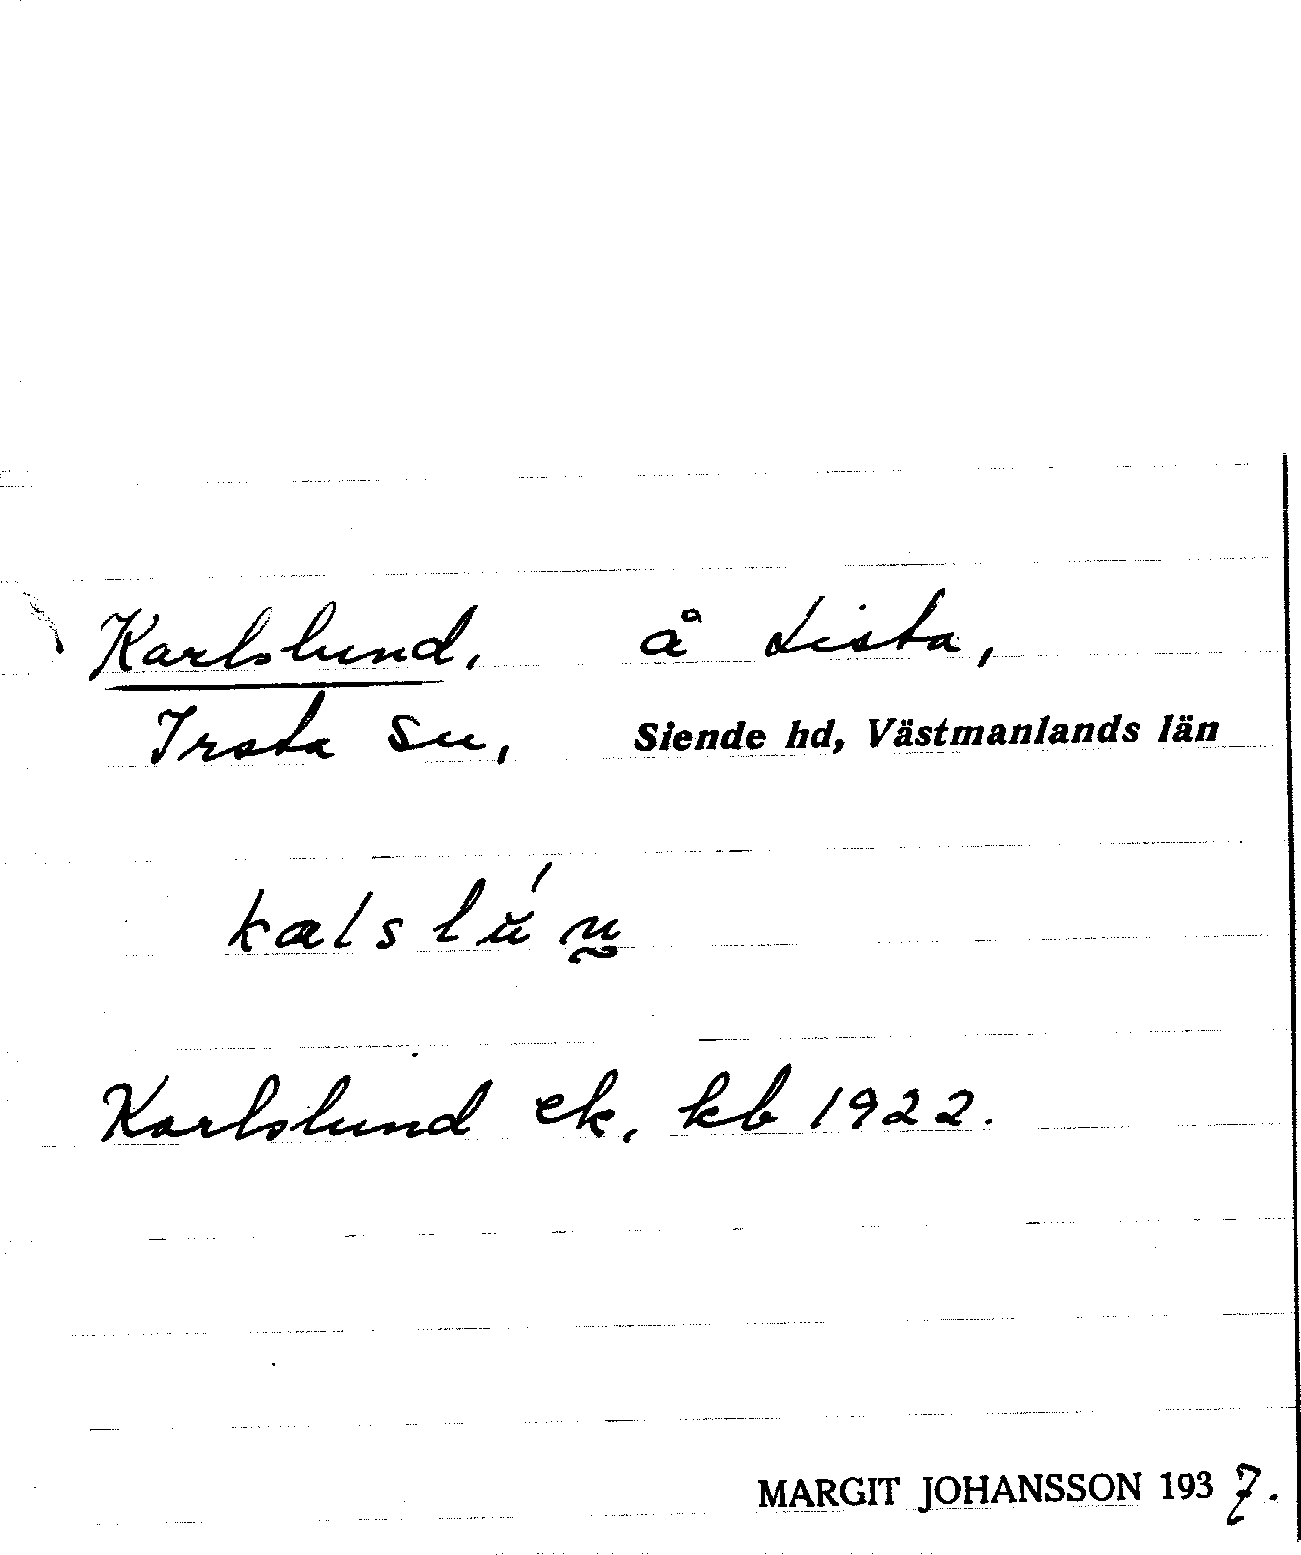 Karlslund, å Lista,
Irsta sn, Siende hd, Västmanlands län
kalslú̆n̰
Karlslund ek. kb 1922.
MARGIT JOHANSSON 1937.